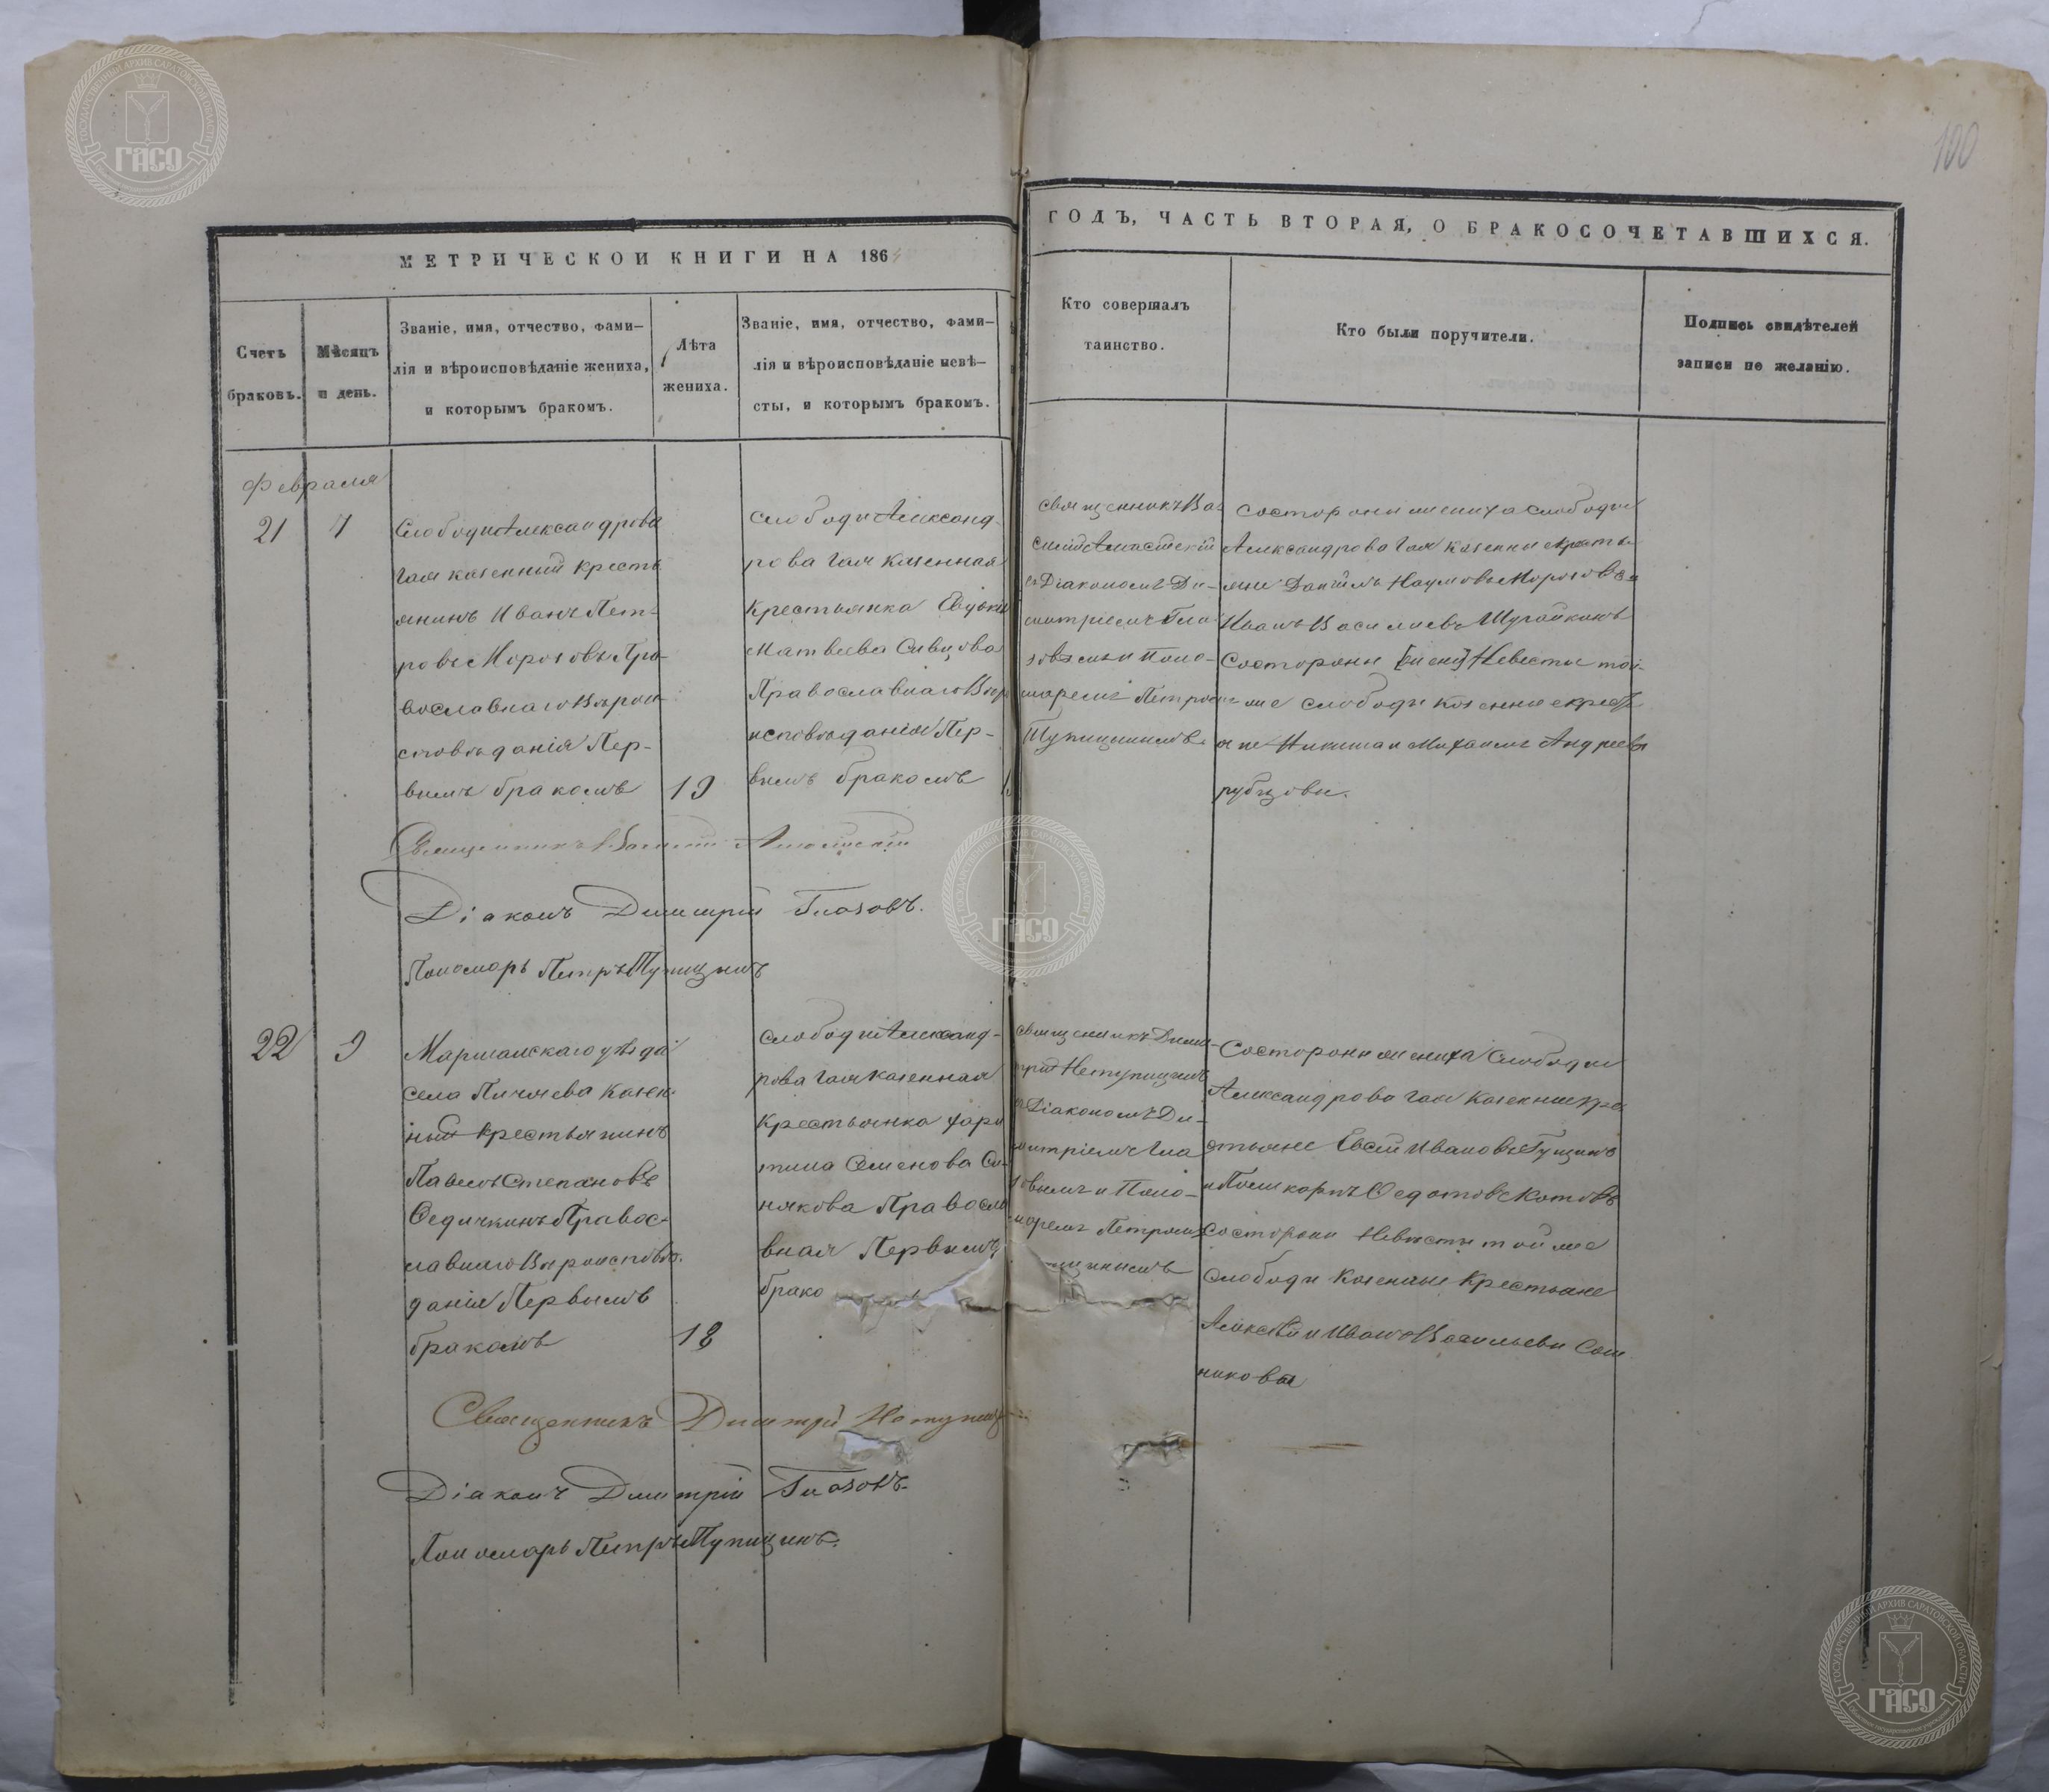 100
МЕТРИЧЕСКОЙ КНИГИ НА 186
ГОДЪ, ЧАСТЬ ВТОРАЯ, О БРАКОСОЧЕТАВШИХСЯ.
Счетъ
браковъ.
Мѣсяцъ
и день.
Званіе, имя, отчество, фами-
лія и вѣроисповѣданіе жениха,
и которымъ бракомъ.
Лѣта
жениха.
Званіе, имя, отчество, фами-
лія и вѣроисповѣданіе невѣ-
сты, и которымъ бракомъ.
Кто совершалъ
таинство.
Кто были поручители.
Подпись свидѣтелей
записи по желанію.
Февраля
21
7
Слободы Александрова
Гая казенный кресть
янинъ Иванъ Пет-
ровъ Морозовъ Пра-
вославнаго Вѣрои-
сповѣданія Пер-
вымъ бракомъ
19
Слободы Александ-
рова Гая казенная
крестьянка Евдокія
Матвеева Сивцова
Православнаго Вѣро
исповѣданія Пер-
вымъ бракомъ
Священникъ Ва-
силій
съ Діакономъ Ди-
митріемъ Гла-
зовымъ и Поно-
маремъ Петромъ
Тупицинымъ
Состороны жениха слободы
Александрова Гая казенные кресть-
яни Даніилъ Наумовъ Морозовъ и
Иванъ Васильевъ Шугайкинъ
Состороны Невесты той-
же слободы казенные кресть
яне Никита и Михаилъ Андреевы
рубцовы.
Священникъ Василій
Діаконъ Димитрій Глазовъ.
Пономарь Петръ Тупицинъ
22
9
Маршанскаго уѣзда
села Пичаева казен-
ный крестьянинъ
Павелъ Степановъ
Федичкинъ Правос-
лавнаго Вѣроисповѣ-
данія Первымъ
бракомъ
18
Слободы Александ-
рова Гая казенная
крестьянка хари
тина Семенова Си-
някова Правосла
вная Первымъ
брако
Священникъ Дими-
трій Нетупицинъ
съ Діакономъ Ди-
митріемъ Гла
зовымъ и Поно-
маремъ Петромъ
Состороны жениха Слободы
Александрова Гая казенные кре
стьяне Евсей Ивановъ Гущинъ
и Поликарпъ Федотовъ Котовъ
Состороны Невѣсты той же
Слободы Казенные Крестьяне
Алексѣй и Иванъ Васильевы
никовы
Священникъ Димитрій Нетупиц
Діаконъ Димитрій Глазовъ.
Пономарь Петръ Тупицинъ.
ГОСУДАРСТВЕННЫЙ АРХИВ САРАТОВСКОЙ ОБЛАСТИ
ГАСО
ГОСУДАРСТВЕННЫЙ АРХИВ САРАТОВСКОЙ ОБЛАСТИ
ГАСО
ГОСУДАРСТВЕННЫЙ АРХИВ САРАТОВСКОЙ ОБЛАСТИ
ГАСО